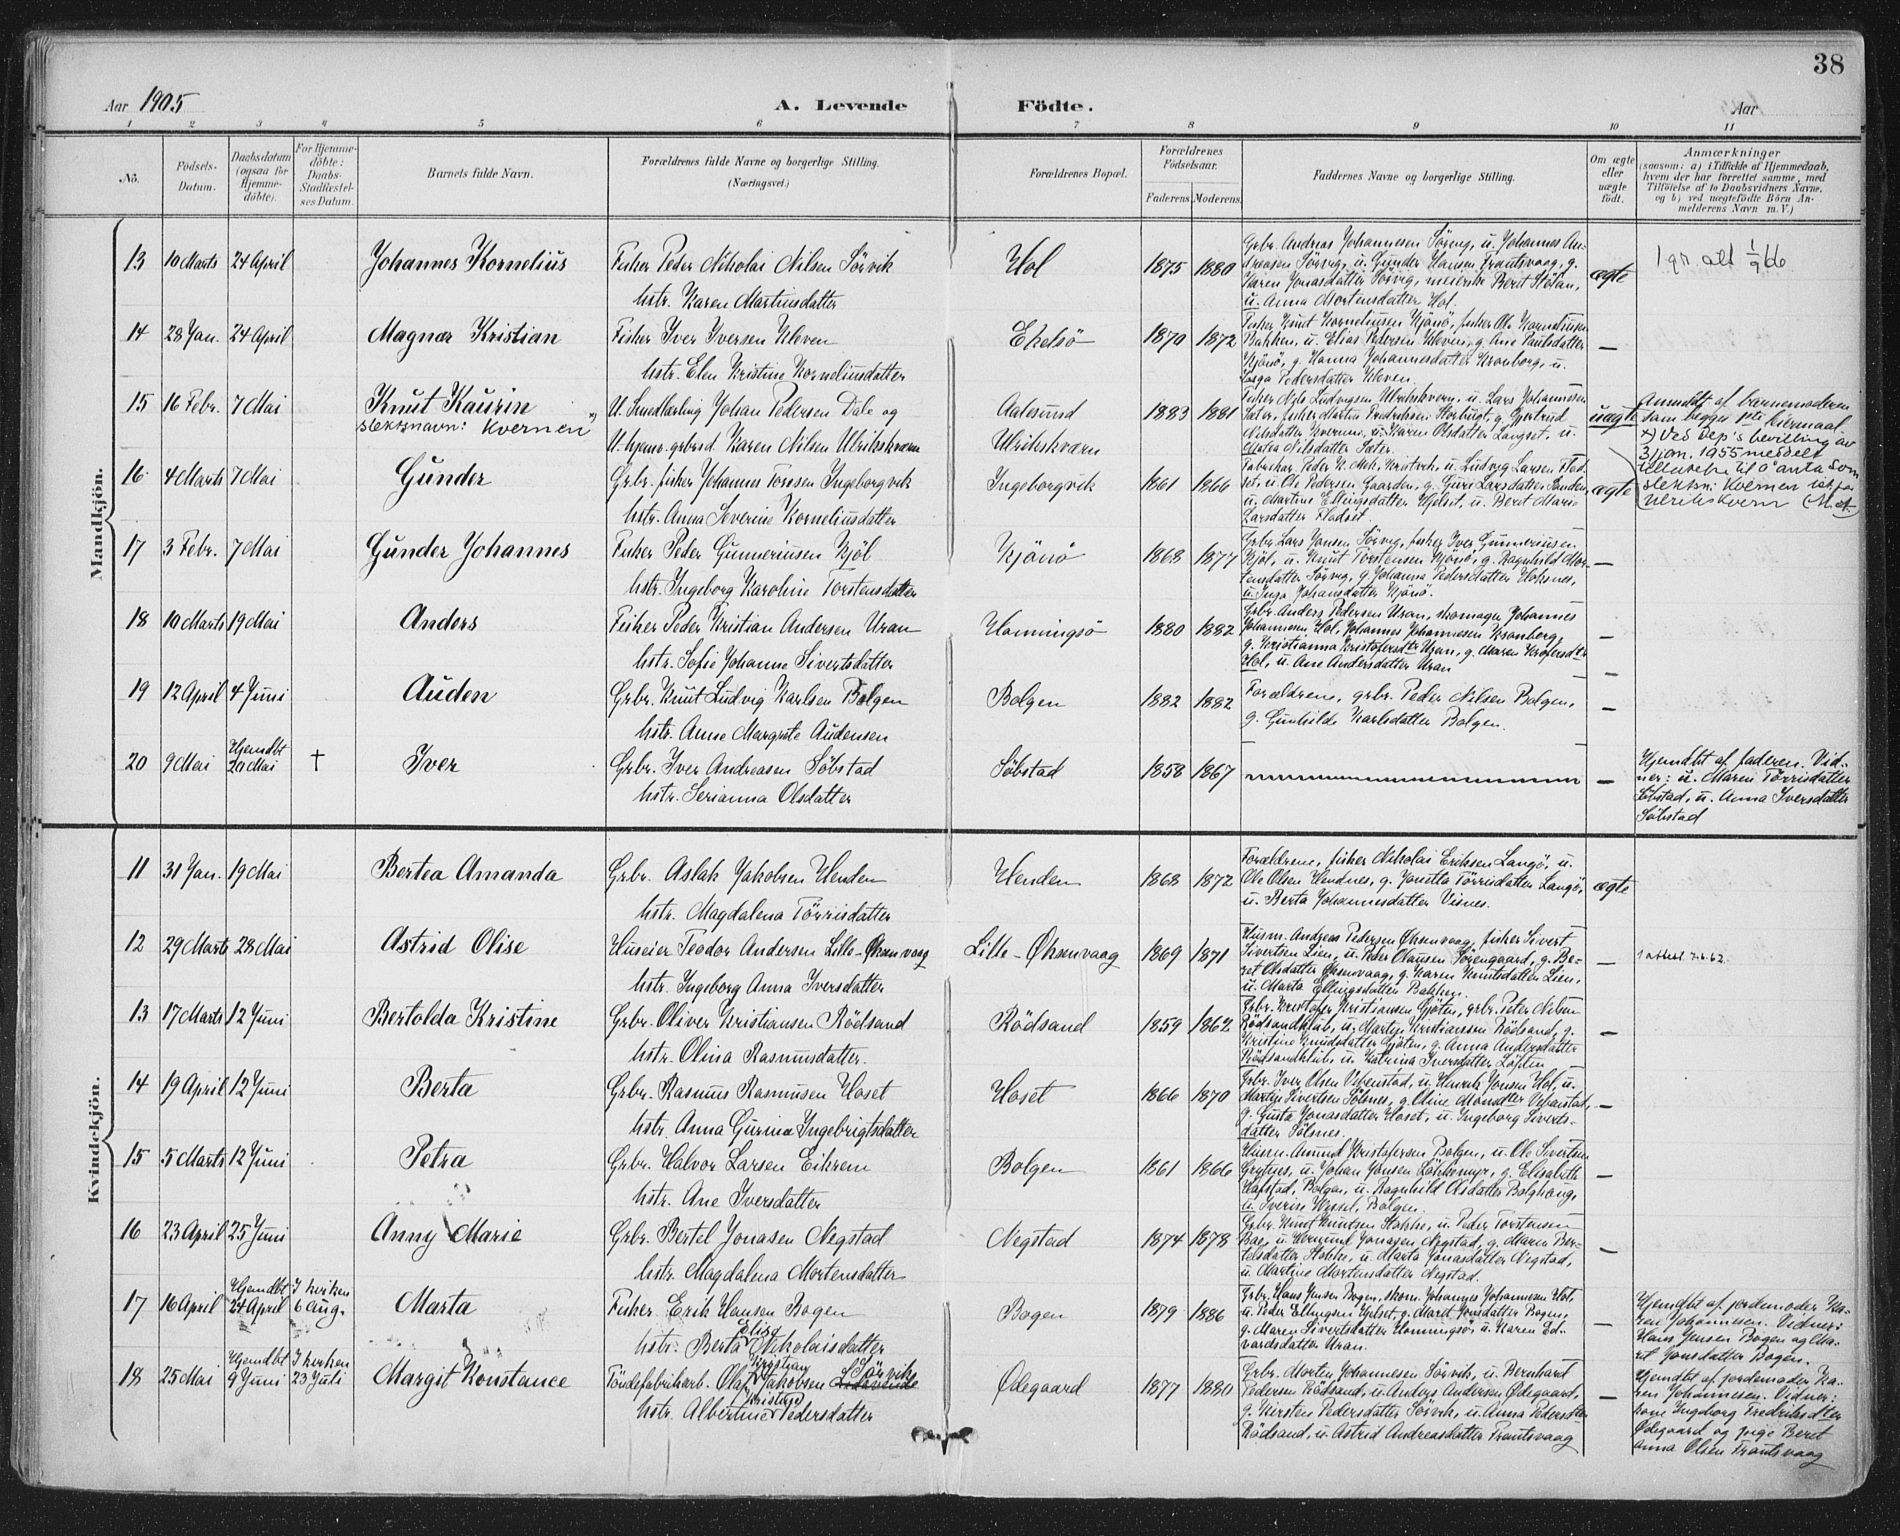 38
Aar 1905 A. Levende Födte. Aar
1 2 3 4 5 6 7 8 9 10 11
No.
Födsels-
Datum.
Daabsdatum
(ogsaa for
Hjemme-
döbte).
For Hjemme-
döbte:
Daabs-
Stadfæstel-
ses Datum.
Barnets fulde Navn.
Forældrenes fulde Navne og borgerlige Stilling.
(Næringsvei.)
Forældrenes Bopæl.
Forældrenes
Födselsaar.
Faderens Moderens
Faddernes Navne og borgerlige Stilling.
Om ægte
eller
uægte
födt.
Anmærkninger
(saasom: a) i Tilfælde af Hjemmedaab,
hvem der har forrettet samme, med
Tilföielse af to Daabsvidners Navne,
og b) ved uægtefödte Börn An-
melderens Navn m. V.)
Mandkjön.
13 10 Marts 24 April Johannes Kornelius
Fisher Peder Nikolai Nilsen Sörvik
hstr. Karen Martinsdatter
Hol 1875 1880
Grbr. Andreas Johannesen Sörvig, u. Johannes An-
dreasen Sörvig, u. Gunder Hansen Frantsvaag, g.
Karen Jonasdatter Sörvig, meierske Berit Stölan,
u. Anna Mortensdatter Hol.
ægte
14 28 Jan. 24 April Magnar Kristian
Fisher Iver Iversen Kleven
hstr. Elen Kristine Korneliusdatter
Ekelsö 1870 1872
Fisher Knut Korneliussen Kjönö, fisher Ole Kornelius
Bakken, u. Elias Pedersen Kleven, g. Ane Paulsdatter
Kjönö, g. Hanna Johannesdatter Kronborg, u.
Pedersdatter Kleven.
—
15 16 Febr. 7 Mai Knut Kaurin
slektsnavn: Kvernen
U. Johan Pedersen Dale og
U. grbrsd. Karen Nilsen Ulrikskvern
Aalesund
Ulrikskværn
1883 1881
Fisher Nils Ludvigsen Ulrikskvern, u. Lars Johannesen
Sæter, fisher Martin Fredriksen g. Gjertrud
Nilsdatter Kvernen, u. Karen Olsdatter Langset, u.
Nilsdatter Sæter.
uægte
Anmeldt af barnemoderen
som begges 1ste
x) Ved Dep's bevilling av
3 jan. 1955 meddelt
tillatelse til å anta som
slektsn: Kvernen ist. for
Ulrikskvern
16 4 Marts 7 Mai Gunder
Grbr. fisher Johannes Tosøsen Ingeborgvik
hstr. Anna Severine Korneliusdatter
Ingeborgvik 1861 1866
u. Ludvig Larsen Flad-
set, u. Ole Pedersen Gaarden, g. Guri Larsdatter
u. Martine Ellingsdatter Hjelset, u. Berit Marie
Larsdatter Fladset
ægte
17 3 Febr. 7 Mai Gunder Johannes
Fisher Peder Gunneriusen Kjöl
hstr. Ingeborg Karoline Torstensdatter
Kjönö 1868 1877
Grbr. Lars Jonsen Sörvig, fisher Iver Gunneriusen
Kjöl, u. Knut Torstensen Kjönö, g. Ragnhild Mor-
tensdatter Sörvig, g. Johanna Pedersdatter Hoksnes,
u. Inga Johansdatter Kjönö.
—
18 10 Marts 19 Mai Anders
Fisher Peder Kristian Andersen Uran
hstr. Sofie Johanne Sivertsdatter
Honningsö 1880 1882
Grbr. Anders Pedersen Uran, skomager Johannes
Johannesen Hol, Johannes Johannesen Kronborg,
g. Kristianna Kristofersdtr Uran, g. Maren
Hol, u. Ane Andersdatter Uran
—
19 12 April 4 Juni Auden
Grbr. Knut Ludvig Karlsen Bolgen
hstr. Anne Margrete Audensen
Bolgen 1882 1882
Forældrene, grbr. Peder Nilsen Bolgen,
g. Gunhilde Karlsdatter Bolgen.
—
20 9 Mai Hjemdbt
20 Mai † Iver
Grbr. Iver Andreasen Söbstad
hstr. Serianna Olsdatter
Söbstad 1858 1867
—
Hjemdbt af faderen. Vid-
ner: u. Maren Törrisdatter
Söbstad, u. Anna Iversdatter
Söbstad
Kvindekjön.
11 31 Jan. 19 Mai Bertea Amanda
Grbr. Aslak Jakobsen Henden
hstr. Magdalena Törrisdatter
Henden 1868 1872
Forældrene, fisher Nikolai Eriksen Langö, u.
Ole Olsen Hendnes, g. Jonetta Törrisdatter Langö,
u. Berta Johannesdatter Visnes.
ægte
12 29 Marts 28 Mai Astrid Olise
Huseier Teodor Andersen Lille-Öksenvaag
hstr. Ingeborg Anna Iversdatter
Lille-Öksenvaag 1869 1871
Husm. Andreas Pedersen Öksenvaag, fisher Sivert
Sivertsen Lien, u. Peder Olausen Sörengaard, g. Be-
ret Olsdatter Öksenvaag, g. Karen Knutsdatter Lien,
u. Marta Ellingsdatter Bakken.
—
13 17 Marts 12 Juni Bertolda Kristine
Grbr. Oliver Kristiansen Rödsand
hstr. Olina Rasmusdatter.
Rödsand 1859 1862
Grbr. Kristofer Kristiansen Gjöten, grbr. Peter Nilsen
Rödsandklub, u. Martin Kristiansen Rödsand, g.
Kristine Knudsdatter Gjöten, g. Anna Andersdatter
Rödsandklub, u. Katrina Iversdatter
—
14 19 April 12 Juni Berta
Grbr. Rasmus Rasmusen Hoset
hstr. Anna Gurina Ingebrigtsdatter
Hoset 1866 1870
Grbr. Iver Olsen Vebenstad, u. Henrik Jonsen Hol, u.
Martin Sivertsen Sölsnes, g. Oline Monsdtr Vebenstad,
g. Gusta Jonasdatter Hoset, u. Ingeborg Siverts-
datter Sölsnes.
—
15 5 Marts 12 Juni Petra
Grbr. Halvor Larsen Eikrem
hstr. Ane Iversdatter
Bolgen 1861 1866
Husm. Amund Kristofersen Bolgen, u. Ole Sivertsen
u. Johan Jonsen g. Elisabeth
Hafstad, Bolgen, u. Ragnhild Olsdatter Bolghaug,
u. Iverine Wessel, Bolgen
—
16 23 April 25 Juni Anny Marie
Grbr. Bertel Jonasen Negstad
hstr. Magdalena Mortensdatter
Negstad 1874 1878
Grbr. Knut Knutsen Stokke, u. Peder Torstensen
Bae, u. Jonasen Negstad, g. Maren Ber-
telsdatter Stokke, u. Marta Jonasdatter Negstad,
u. Martine Mortensdatter Negstad.
—
17 16 April Hjemdbt
24 April I kirken
6 Aug. Marta
Fisher Erik Hansen Bogen
hstr. Berta Elise Nikolaisdatter
Bogen 1879 1886
Grbr. Hans Jensen Bogen, skom. Johannes Johannesen Hol,
u. Peder Ellingsen Hjelset, g. Maret Jonsdatter Bogen,
g. Maren Sivertsdatter Honningsö, u. Karen Ed-
vardsdatter Uran.
—
Hjemdbt af jordemoder Ka-
ren Johannesen. Vidner:
Hans Jensen Bogen og Ma-
ret Jonsdatter Bogen.
18 25 Mai Hjemdbt
9 Juni I kirken
23 Juli Margit Konstance
Töndefabrikarb. Olaf Kristian Jakobsen Sörvik
hstr. Albertine Pedersdatter
Ödegaard 1877 1880
Grbr. Morten Johannesen Sörvik, u. Bernhard
Pedersen Rödsand, u. Anders Andersen Ödegaard,
g. Kirsten Pedersdatter Sörvik, u. Anna Pedersdtr
Rödsand, u. Astrid Andreasdatter Frantsvaag
—
Hjemdbt af jordemoder Ka-
ren Johannesen. Vidner:
kone Ingeborg Fredriksdtr
Ödegaard og pige Beret
Anna Olsen Frantsvaag